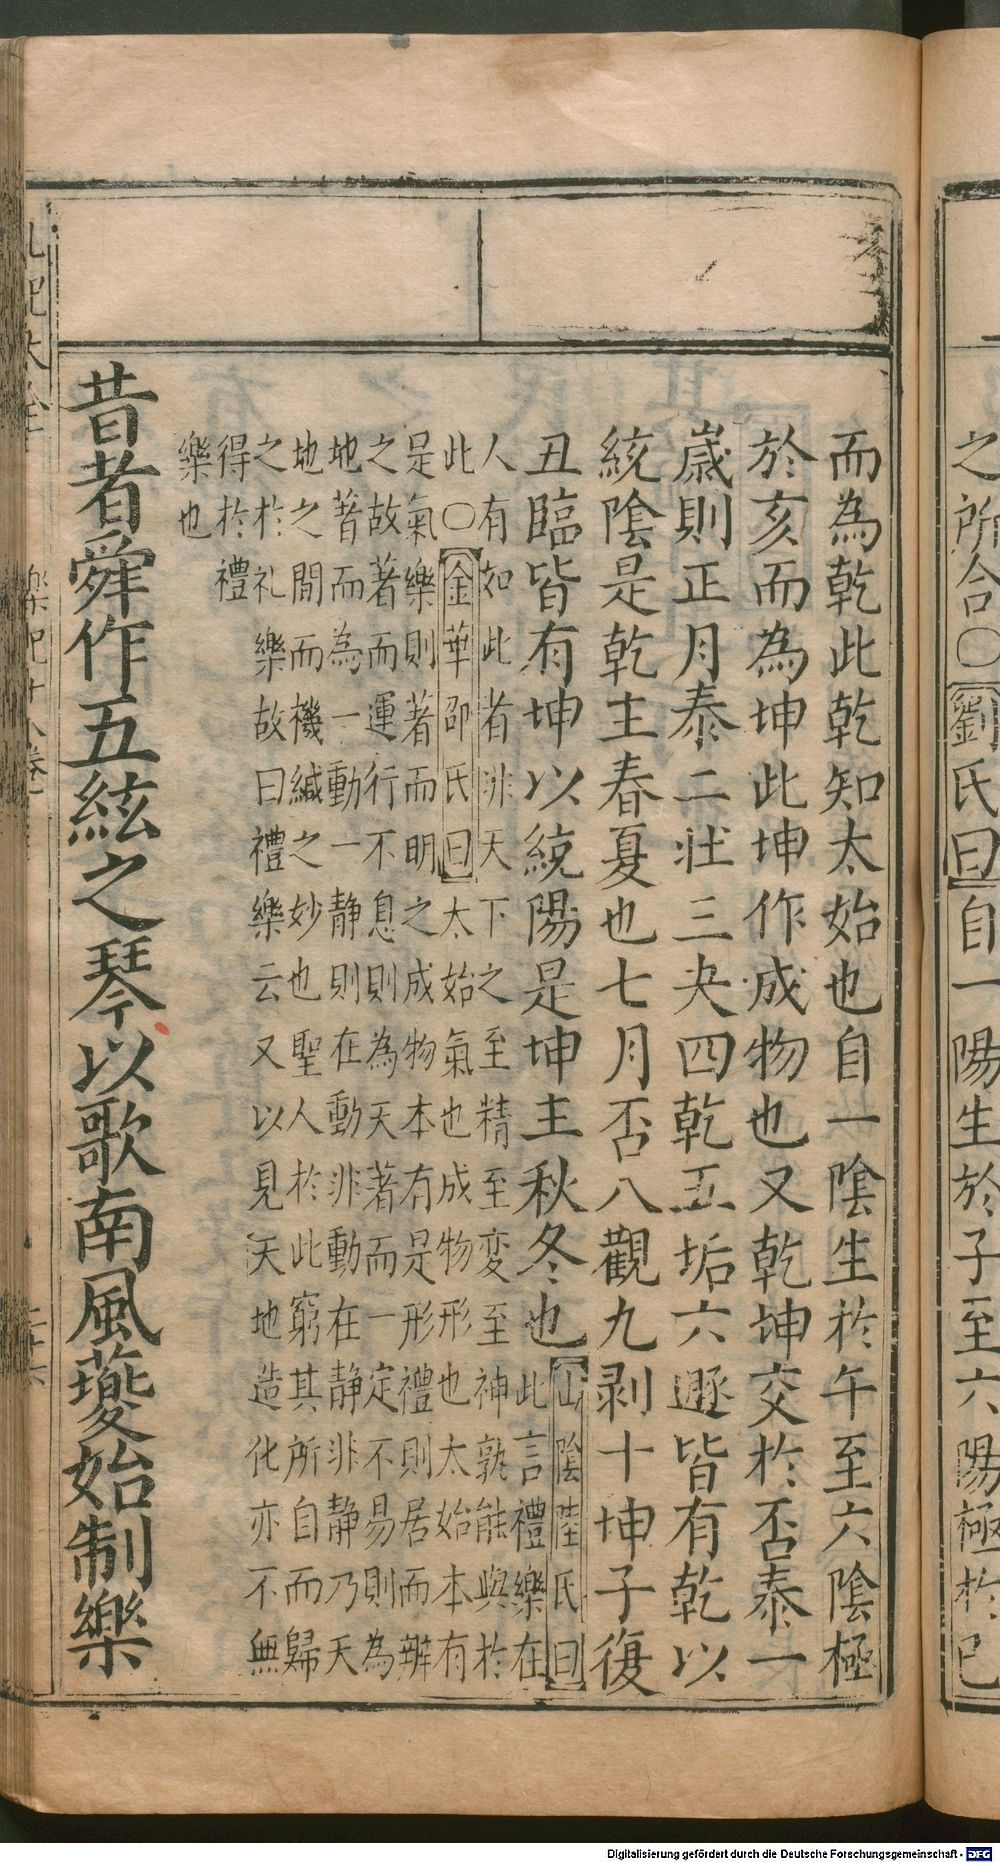 之所合○劉氏曰自一陽生於子至六陽極於巳
而為乾此乾知太始也自一陰生於午至六陰極
於亥而為坤此坤作成物也又乾坤交於否泰一
歲則正月泰二壯三夬四乾五垢六遯皆有乾以
統陰是乾主春夏也七月否八觀九剥十坤子復
丑臨皆有坤以統陽是坤主秋冬也
山陰陸氏曰
此言禮樂在
人有如此者非天下之至精至変至神孰能與於
此○金華邵氏曰太始氣也成物形也太始本有
是氣樂則著而明之成物本有是形禮則居而辨
之故著而運行不息則為天著而一定不易則為
地著而為一動一静則在動非動在静非静乃天
地之間而機緘之妙也聖人於此窮其所自而歸
之於礼樂故曰禮樂云又以見天地造化亦不無
得於禮
樂也
昔者舜作五絃之琴以歌南風夔始制樂
記大全
樂記十八卷
二十六
Digitalisierung gefördert durch die Deutsche Forschungsgemeinschaft - DFG